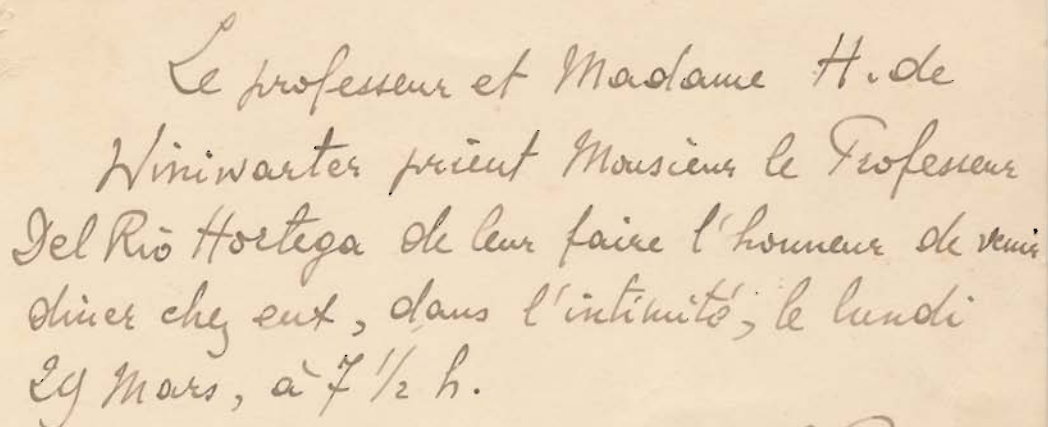 Le professeur et Madame H. de
Winiwarter prient Monsieur le Professeur
Del Rio Hortega de leur faire l'honneur de venir
diner chez eux, dans l'intimité, le lundi
29 Mars, à 7 1/2 h.